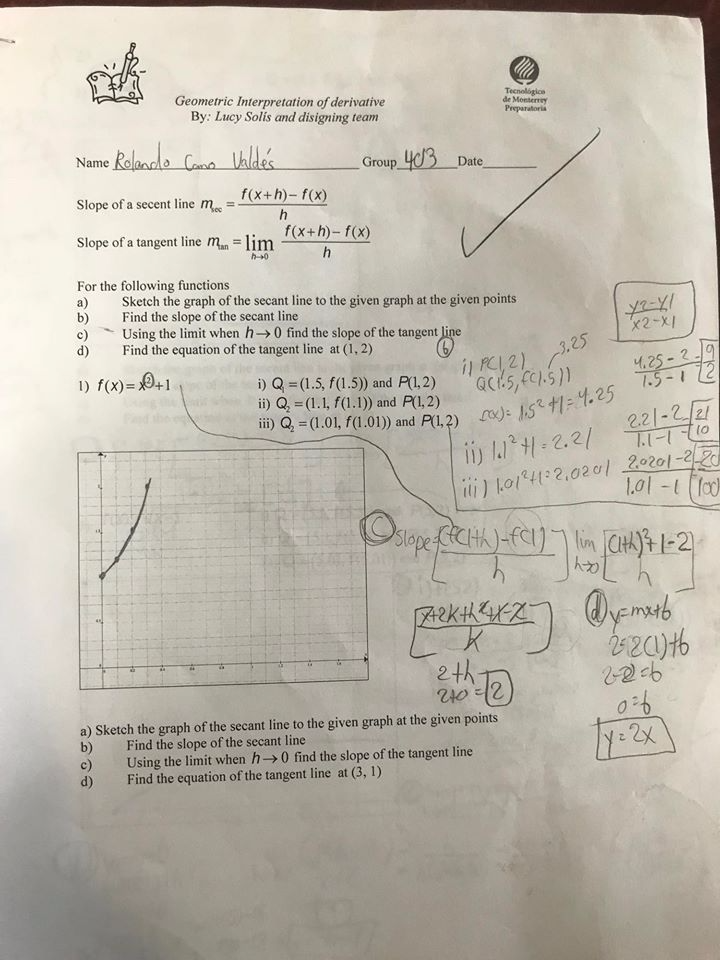 Tecnológico
de Monterrey
Preparatoria
Geometric Interpretation of derivative
By: Lucy Solís and disigning team
Name Rolando Cano Valdés Group 4013 Date
Slope of a secent line m_sec = f(x+h)− f(x) / h
Slope of a tangent line m_tan = lim h→0 f(x+h)− f(x) / h
For the following functions
a) Sketch the graph of the secant line to the given graph at the given points
b) Find the slope of the secant line
c) Using the limit when h→0 find the slope of the tangent line
d) Find the equation of the tangent line at (1, 2)
1) f(x)= x²+1
i) Q₁ = (1.5, f(1.5)) and P(1, 2)
ii) Q₂ = (1.1, f(1.1)) and P(1, 2)
iii) Q₂ = (1.01, f(1.01)) and P(1, 2)
y2-y1 / x2-x1
b
i) P(1,2) 3.25
Q(1.5, f(1.5))
f(x)= 1.5²+1=4.25
ii) 1.1²+1=2.21
iii) 1.01²+1=2.0201
4.25-2 / 1.5-1 = 9/2
2.21-2 / 1.1-1 = 21/10
2.0201-2 / 1.01-1
c Slope= f(1+h)-f(1) / h
lim h→0 [(1+h)²+1-2 / h]
2+h
2+0=2
d y=mx+b
2=2(1)+b
2-2=b
0=b
y=2x
a) Sketch the graph of the secant line to the given graph at the given points
b) Find the slope of the secant line
c) Using the limit when h→0 find the slope of the tangent line
d) Find the equation of the tangent line at (3, 1)